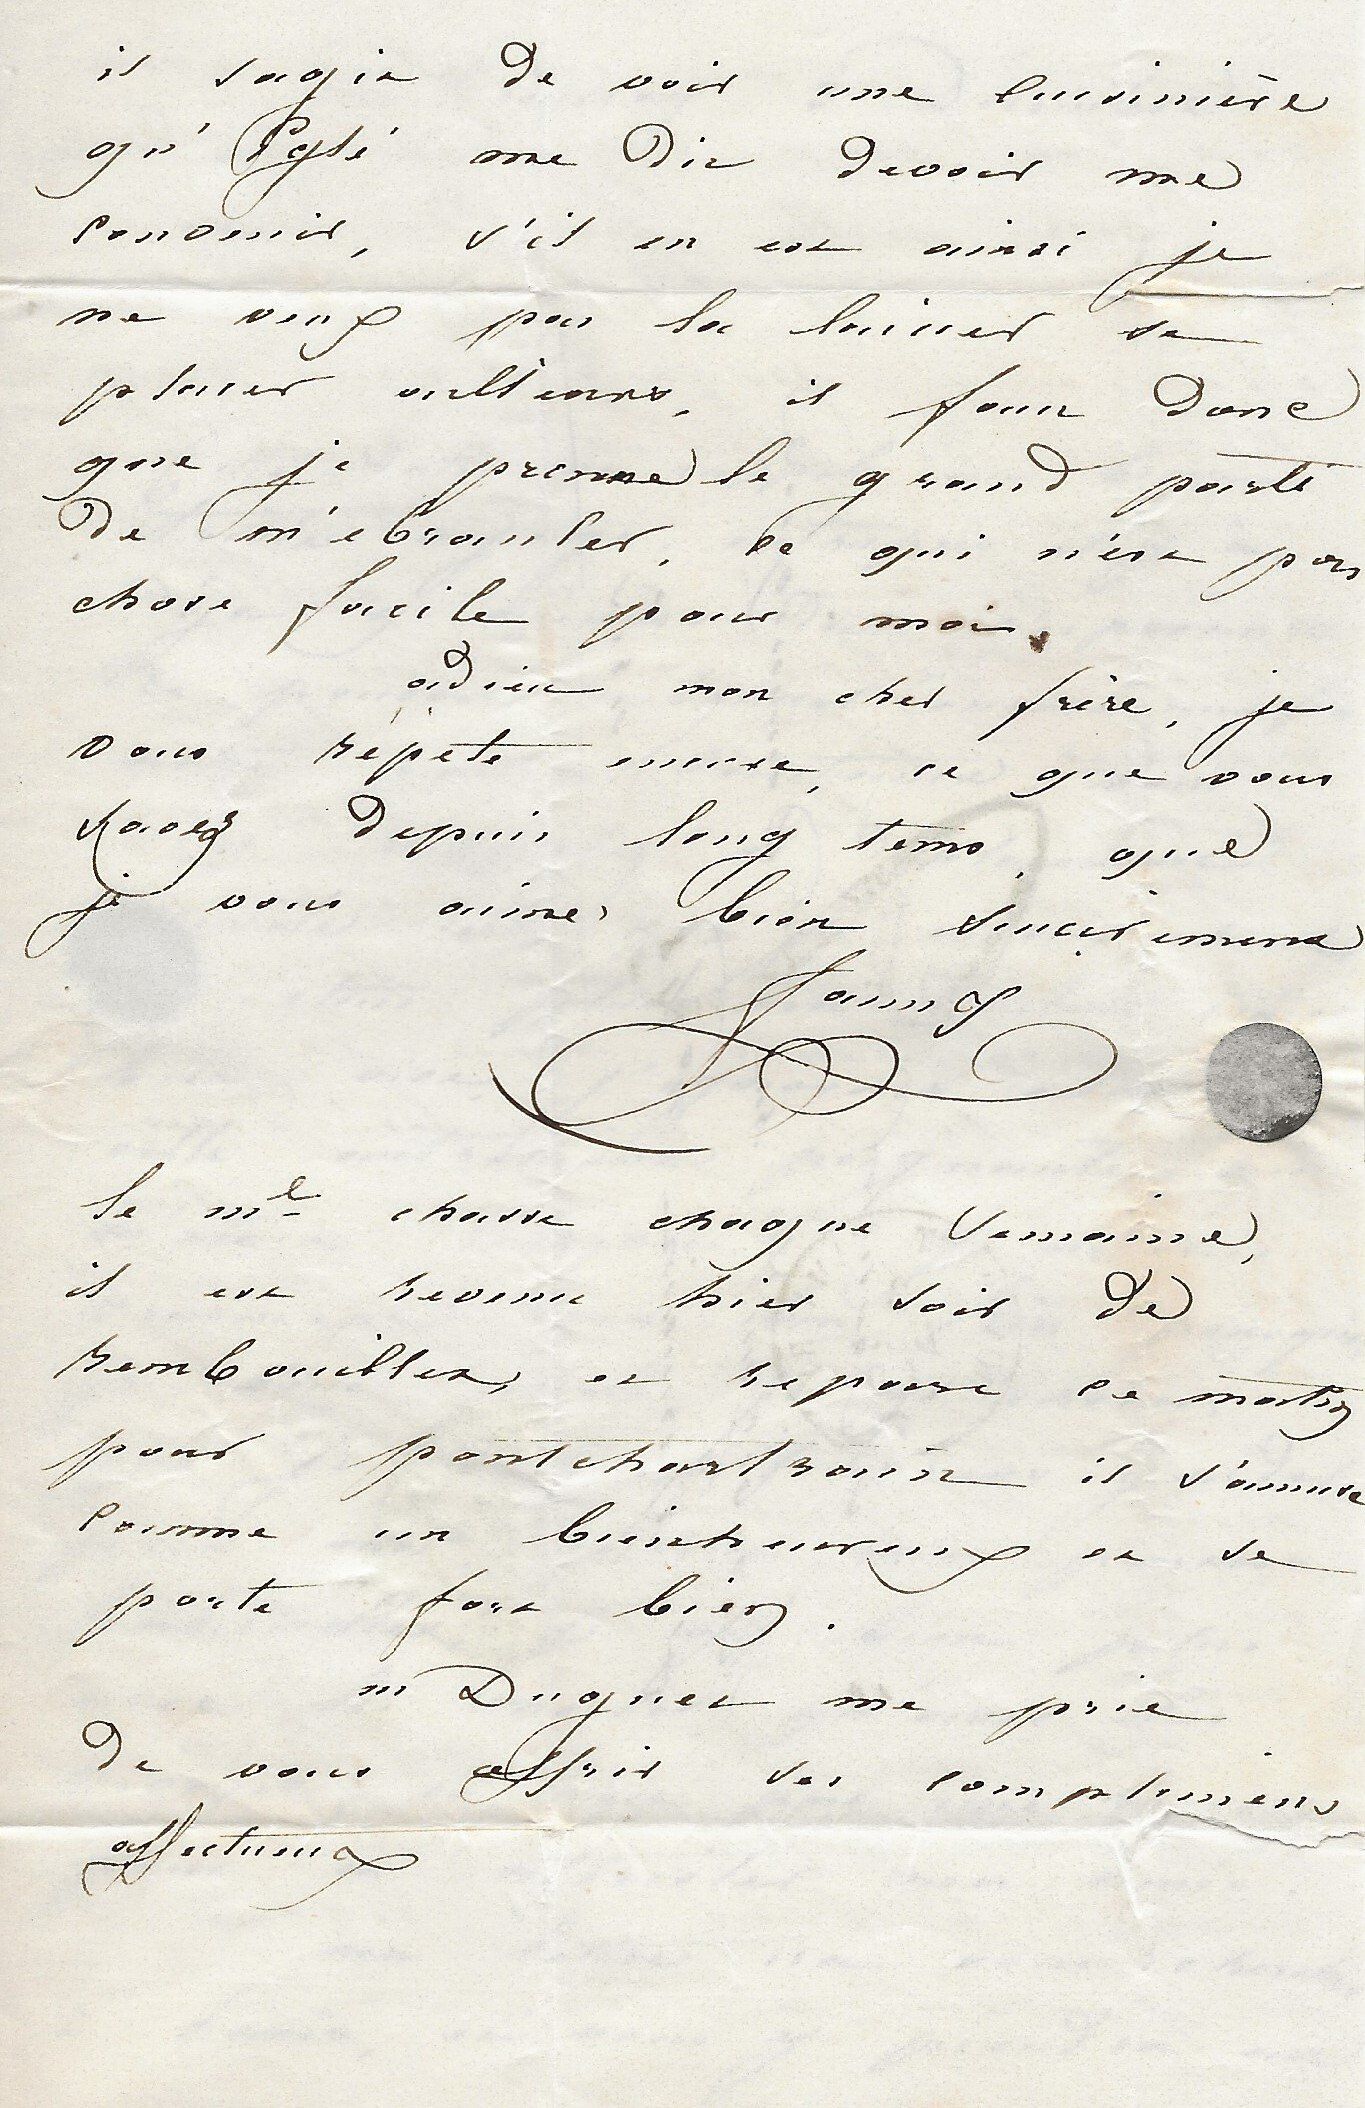 il sagit de voir une cuisinière
qu'Eglé me dit devoir me
convenir, s'il en est ainsi je
ne veux pas la laisser se
placer ailleurs, il faut donc
que je prenne le grand parti
de m'ebranler, ce qui n'est pas
chose facile pour moi.
adieu mon cher frère, je
vous répete encore, ce que vous
savez depuis long tems, que
je vous aime bien sincerement
fanny
le m^l chasse chaque semaine,
il est revenu hier soir de
rembouillet, et repart ce matin
pour pontchartrain il s'amuse
comme un bienheureux et se
porte fort bien.
m Duguet me prie
de vous offrir ses complimens
affectueux